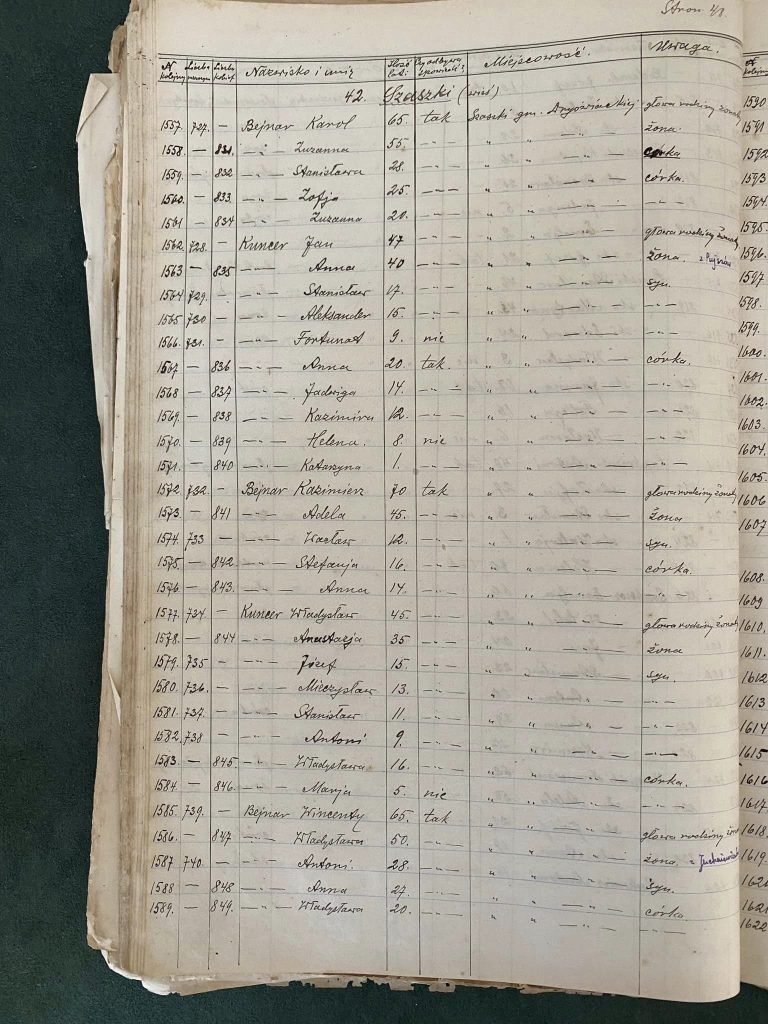 Stron 48
N kolejny Liczba męzczyzn Liczba kobiet Nazwisko i imię Ilość lat: Czy odbywa spowiedź? Miejscowość. Uwaga. N kolejny
42. Szaszki (wieś)
1557. 727. — Bejnar Karol 65. tak Szaszki gm. głowa rodziny żonaty 1590
1558. — 831. —"— Zuzanna 55. —"— " " —"— żona. 1591
1559. — 832 —"— Stanisława 28. —"— " " —"— córka 1592
1560. — 833. —"— Zofja 25. —"— " " —"— córka. 1593
1561 — 834 —"— Zuzanna 20. —"— " " —"— —"— 1594.
1562. 728. — Kuncer Jan 47 —"— " " —"— głowa rodziny żonaty 1595.
1563 — 835 —"— Anna 40 —"— " " —"— żona. 1596.
1564 729. — —"— Stanisław 17. —"— " " —"— syn. 1597
1565 730 — —"— Aleksander 15. —"— " " —"— —"— 1598.
1566. 731. — —"— Fortunat 9. nie " " —"— —"— 1599.
1567. — 836 —"— Anna 20. tak. " " —"— córka. 1600.
1568 — 837 —"— Jadwiga 14. —"— " " —"— —"— 1601.
1569. — 838 —"— Kazimira 12. —"— " " —"— —"— 1602.
1570. — 839 —"— Helena. 8. nie " " —"— —"— 1603.
1571. — 840 —"— Katarzyna 1. —"— " " —"— —"— 1604.
1572. 732. — Bejnar Kazimierz 70 tak " " —"— głowa rodziny żonaty 1605.
1573. — 841 —"— Adela 45. —"— " " —"— żona 1606
1574. 733 — —"— Wacław 12. —"— " " —"— syn. 1607
1575. — 842. —"— Stefanja 16. —"— " " —"— córka.
1576. — 843. —"— Anna 14. —"— " " —"— —"— 1608.
1577. 734. — Kuncer Władysław 45. —"— " " —"— głowa rodziny żonaty 1609
1578. — 844 —"— Anastazja 35 —"— " " —"— żona 1610.
1579. 735 — —"— Józef 15. —"— " " —"— syn. 1611.
1580. 736. — —"— Mieczysław 13. —"— " " —"— —"— 1612
1581. 737. — —"— Stanisław 11. —"— " " —"— —"— 1613
1582. 738 — —"— Antoni 9. —"— " " —"— —"— 1614
1583. — 845. —"— Władysława 16. —"— " " —"— córka. 1615
1584. — 846. —"— Marja 5. nie " " —"— —"— 1616
1585. 739. — Bejnar Wincenty 65. tak " " —"— głowa rodziny żonaty 1617.
1586. — 847 —"— Władysława 50. —"— " " —"— żona 1618.
1587 740. — —"— Antoni. 28. —"— " " —"— syn. 1619.
1588 — 848 —"— Anna 27. —"— " " —"— córka. 1620
1589. — 849. —"— Władysława 20. —"— " " —"— —"— 1621
1622